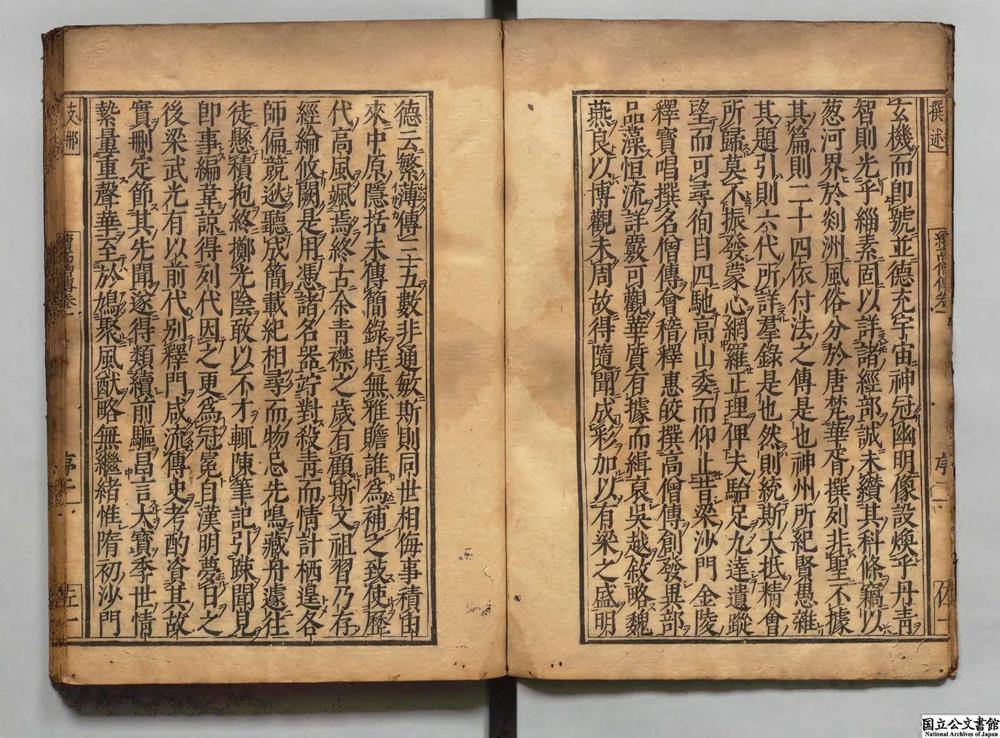 撰述
玄機而即號並德充宇宙神冠幽明像設煥乎丹青
智則光乎緇素固以詳諸經部誠未纘其科條竊以
葱河界於剡洲風俗分於唐梵華胥撰列非聖不據
其篇則二十四依付法之傳是也神州所紀賢愚雜
其題引則六代所詳羣錄是也然則統斯大抵精會
所歸莫不振發蒙心網羅正理俾夫駘足九達遺蹤
望而可尋徇目四馳高山委而仰止昔梁沙門金陵
釋寶唱撰名僧傳會稽釋惠皎撰高僧傳創發異部
品藻恒流詳覈可觀華質有據而緝裒吳越敘略魏
燕良以博觀未周故得隨聞成彩加以有梁之盛明
德云繁薄傳三五數非通敏斯則同世相侮事積由
來中原隱括未傳簡錄時無雅贍誰為補之致使歷
代高風颯焉終古余青襟之歲有顧斯文祖習乃存
經綸攸闕是用憑諸名器竚對殺青而情計栖遑各
師偏競逖聽成簡載紀相尋而物忌先鳴藏舟遽往
徒懸積抱終擲光陰敢以不才輒陳筆記引疎聞見
即事編韋諒得列代因之更為冠冕自漢明夢日之
後梁武光有以前代別釋門咸流傳史考酌資其故
實刪定節其先聞遂得類續前驅昌言大寶季世情
縶量重聲華至於鳩聚風猷略無繼緒惟隋初沙門
支那
續高僧傳卷一
国立公文書館
National Archives of Japan